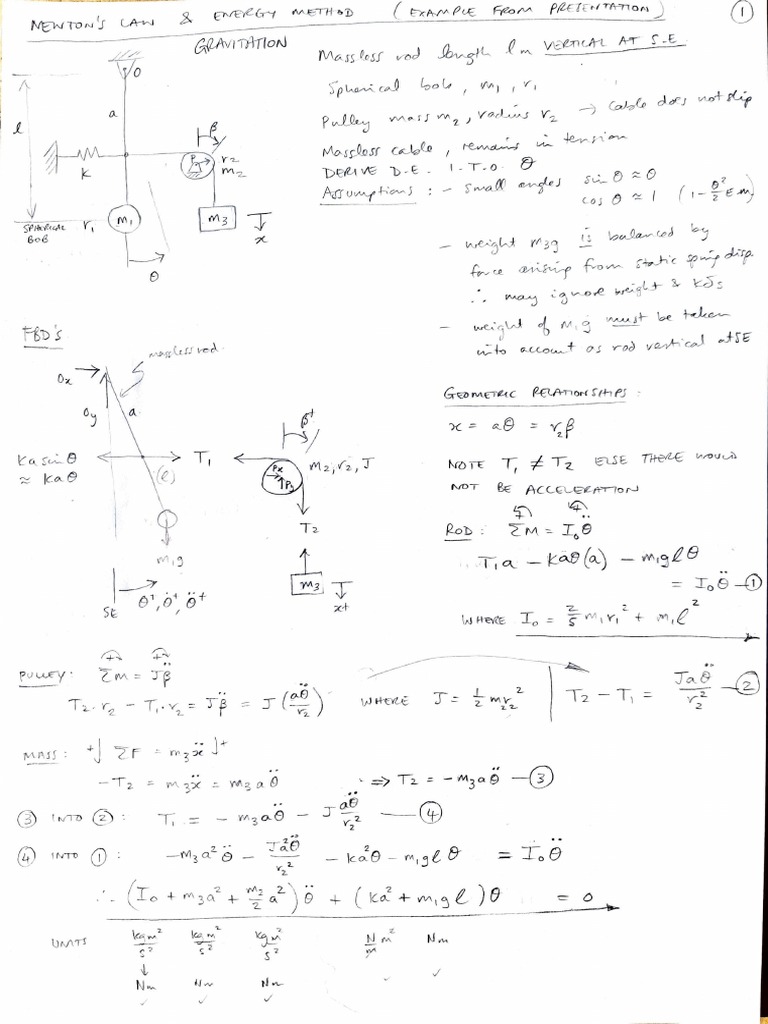 NEWTON'S LAW & ENERGY METHOD (EXAMPLE FROM PRESENTATION) 1
GRAVITATION
Massless rod length l m VERTICAL AT S.E
Spherical bob, m₁, r₁
Pulley mass m₂, radius r₂ → Cable does not slip
Massless cable, remains in tension
DERIVE D.E. I.T.O. θ
Assumptions: - small angles sin θ ≈ θ
cos θ ≈ 1 (1-θ²/2 E.M)
- weight m₃g is balanced by
force arising from static spring disp
∴ may ignore weight & Kδs
- weight of m₁g must be taken
into account as rod vertical at SE
O
a
l
K
β
P
r₂
m₂
m₃
x
SPHERICAL
BOB
r₁
m₁
θ
FBD's
massless rod
Ox
Oy
a
Ka sin θ
≈ Kaθ
T₁
(l)
m₁g
SE
θ⁺, θ̇⁺, θ̈⁺
β⁺
Px
Py
m₂, r₂, J
T₂
m₃
x+
GEOMETRIC RELATIONSHIPS:
x = aθ = r₂β
NOTE T₁ ≠ T₂ ELSE THERE WOULD
NOT BE ACCELERATION
ROD: ΣM = I₀θ̈
T₁a - Kaθ(a) - m₁glθ
= I₀θ̈ — 1
WHERE I₀ = 2/5 m₁r₁² + m₁l²
PULLEY: ΣM = Jβ̈
T₂.r₂ - T₁.r₂ = Jβ̈ = J(aθ̈/r₂) WHERE J = 1/2 m₂r₂² | T₂ - T₁ = Jaθ̈/r₂² — 2
MASS: +↓ ΣF = m₃ẍ ↓+
-T₂ = m₃ẍ = m₃aθ̈ ⇒ T₂ = -m₃aθ̈ — 3
3 INTO 2: T₁ = -m₃aθ̈ - J aθ̈/r₂² — 4
4 INTO 1: -m₃a²θ̈ - Ja²θ̈/r₂² - ka²θ - m₁glθ = I₀θ̈
∴ (I₀ + m₃a² + m₂/2 a²)θ̈ + (ka² + m₁gl)θ = 0
UNITS kgm²/s² kgm²/s² kgm²/s² N/m m² Nm
↓
Nm Nm Nm ✓ ✓
✓ ✓ ✓